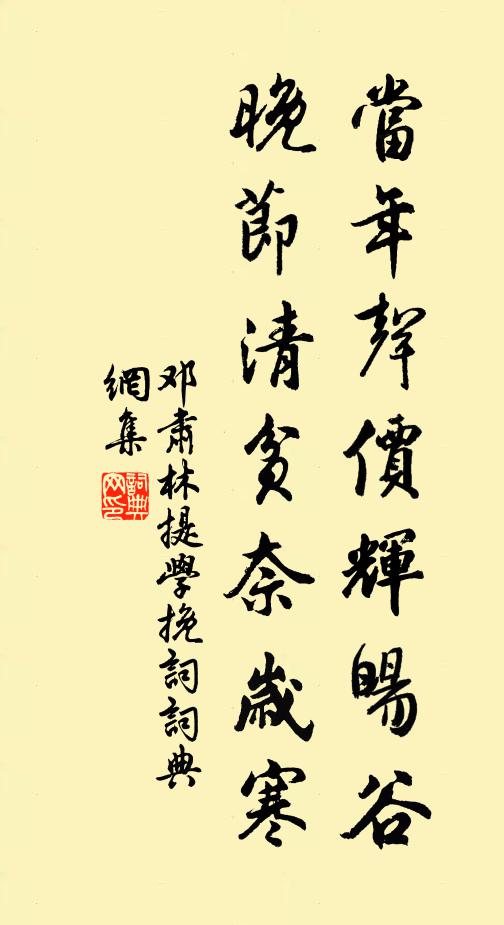 當年聲價輝暘谷
晚節清貧奈歲寒
邓肅林提學挽詞詞典
網集
詞典
网印